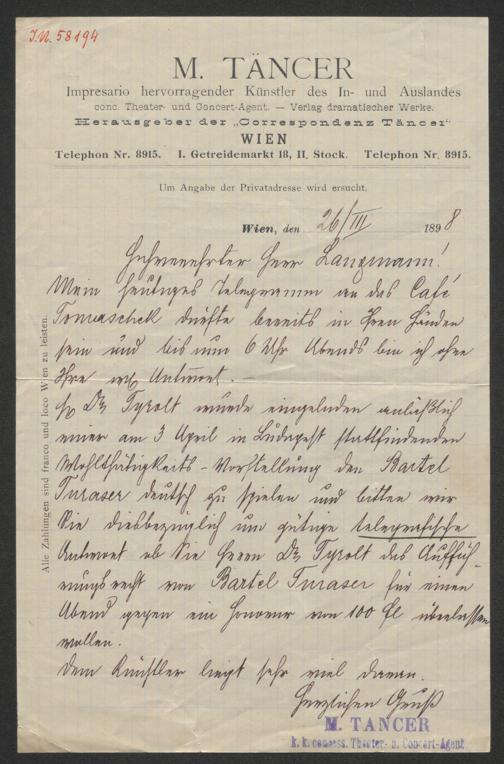 I.N. 58194
M. TÄNCER
Impresario hervorragender Künstler des In- und Auslandes
conc. Theater- und Concert-Agent. — Verlag dramatischer Werke.
Herausgeber der „Correspondenz Täncer"
WIEN
Telephon Nr. 8915. I. Getreidemarkt 18, II. Stock. Telephon Nr. 8915.
Um Angabe der Privatadresse wird ersucht.
Wien, den 26/III 1898
Hochverehrter Herr Langmann!
Mein heutiges Telegramm an das Café
Tomaschek dürfte bereits in Ihren Händen
sein und bis nun 6 Uhr Abends bin ich ohne
Ihre Antwort. —
Dr Tyrolt wurde eingeladen anläßlich
einer am 3 April in Budapest stattfindenden
Wohlthätigkeits-Vorstellung den Bartel
Turaser deutsch zu spielen und bitten wir
Sie diesbezüglich um gütige telegrafische
Antwort ob Sie Herrn Dr Tyrolt das Auffüh-
rungsrecht von Bartel Turaser für einen
Abend gegen ein Honorar von 100 fl überlassen
wollen.
Dem Künstler liegt sehr viel daran.
Herzlichen Gruß
M. TÄNCER
k. k. concess. Theater- u. Concert-Agent
Alle Zahlungen sind franco und loco Wien zu leisten.